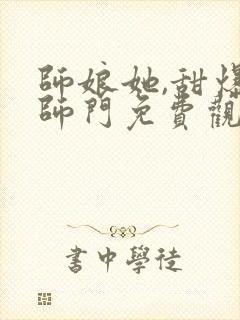 師娘她,甜爆
師門免費觀
書中學徒